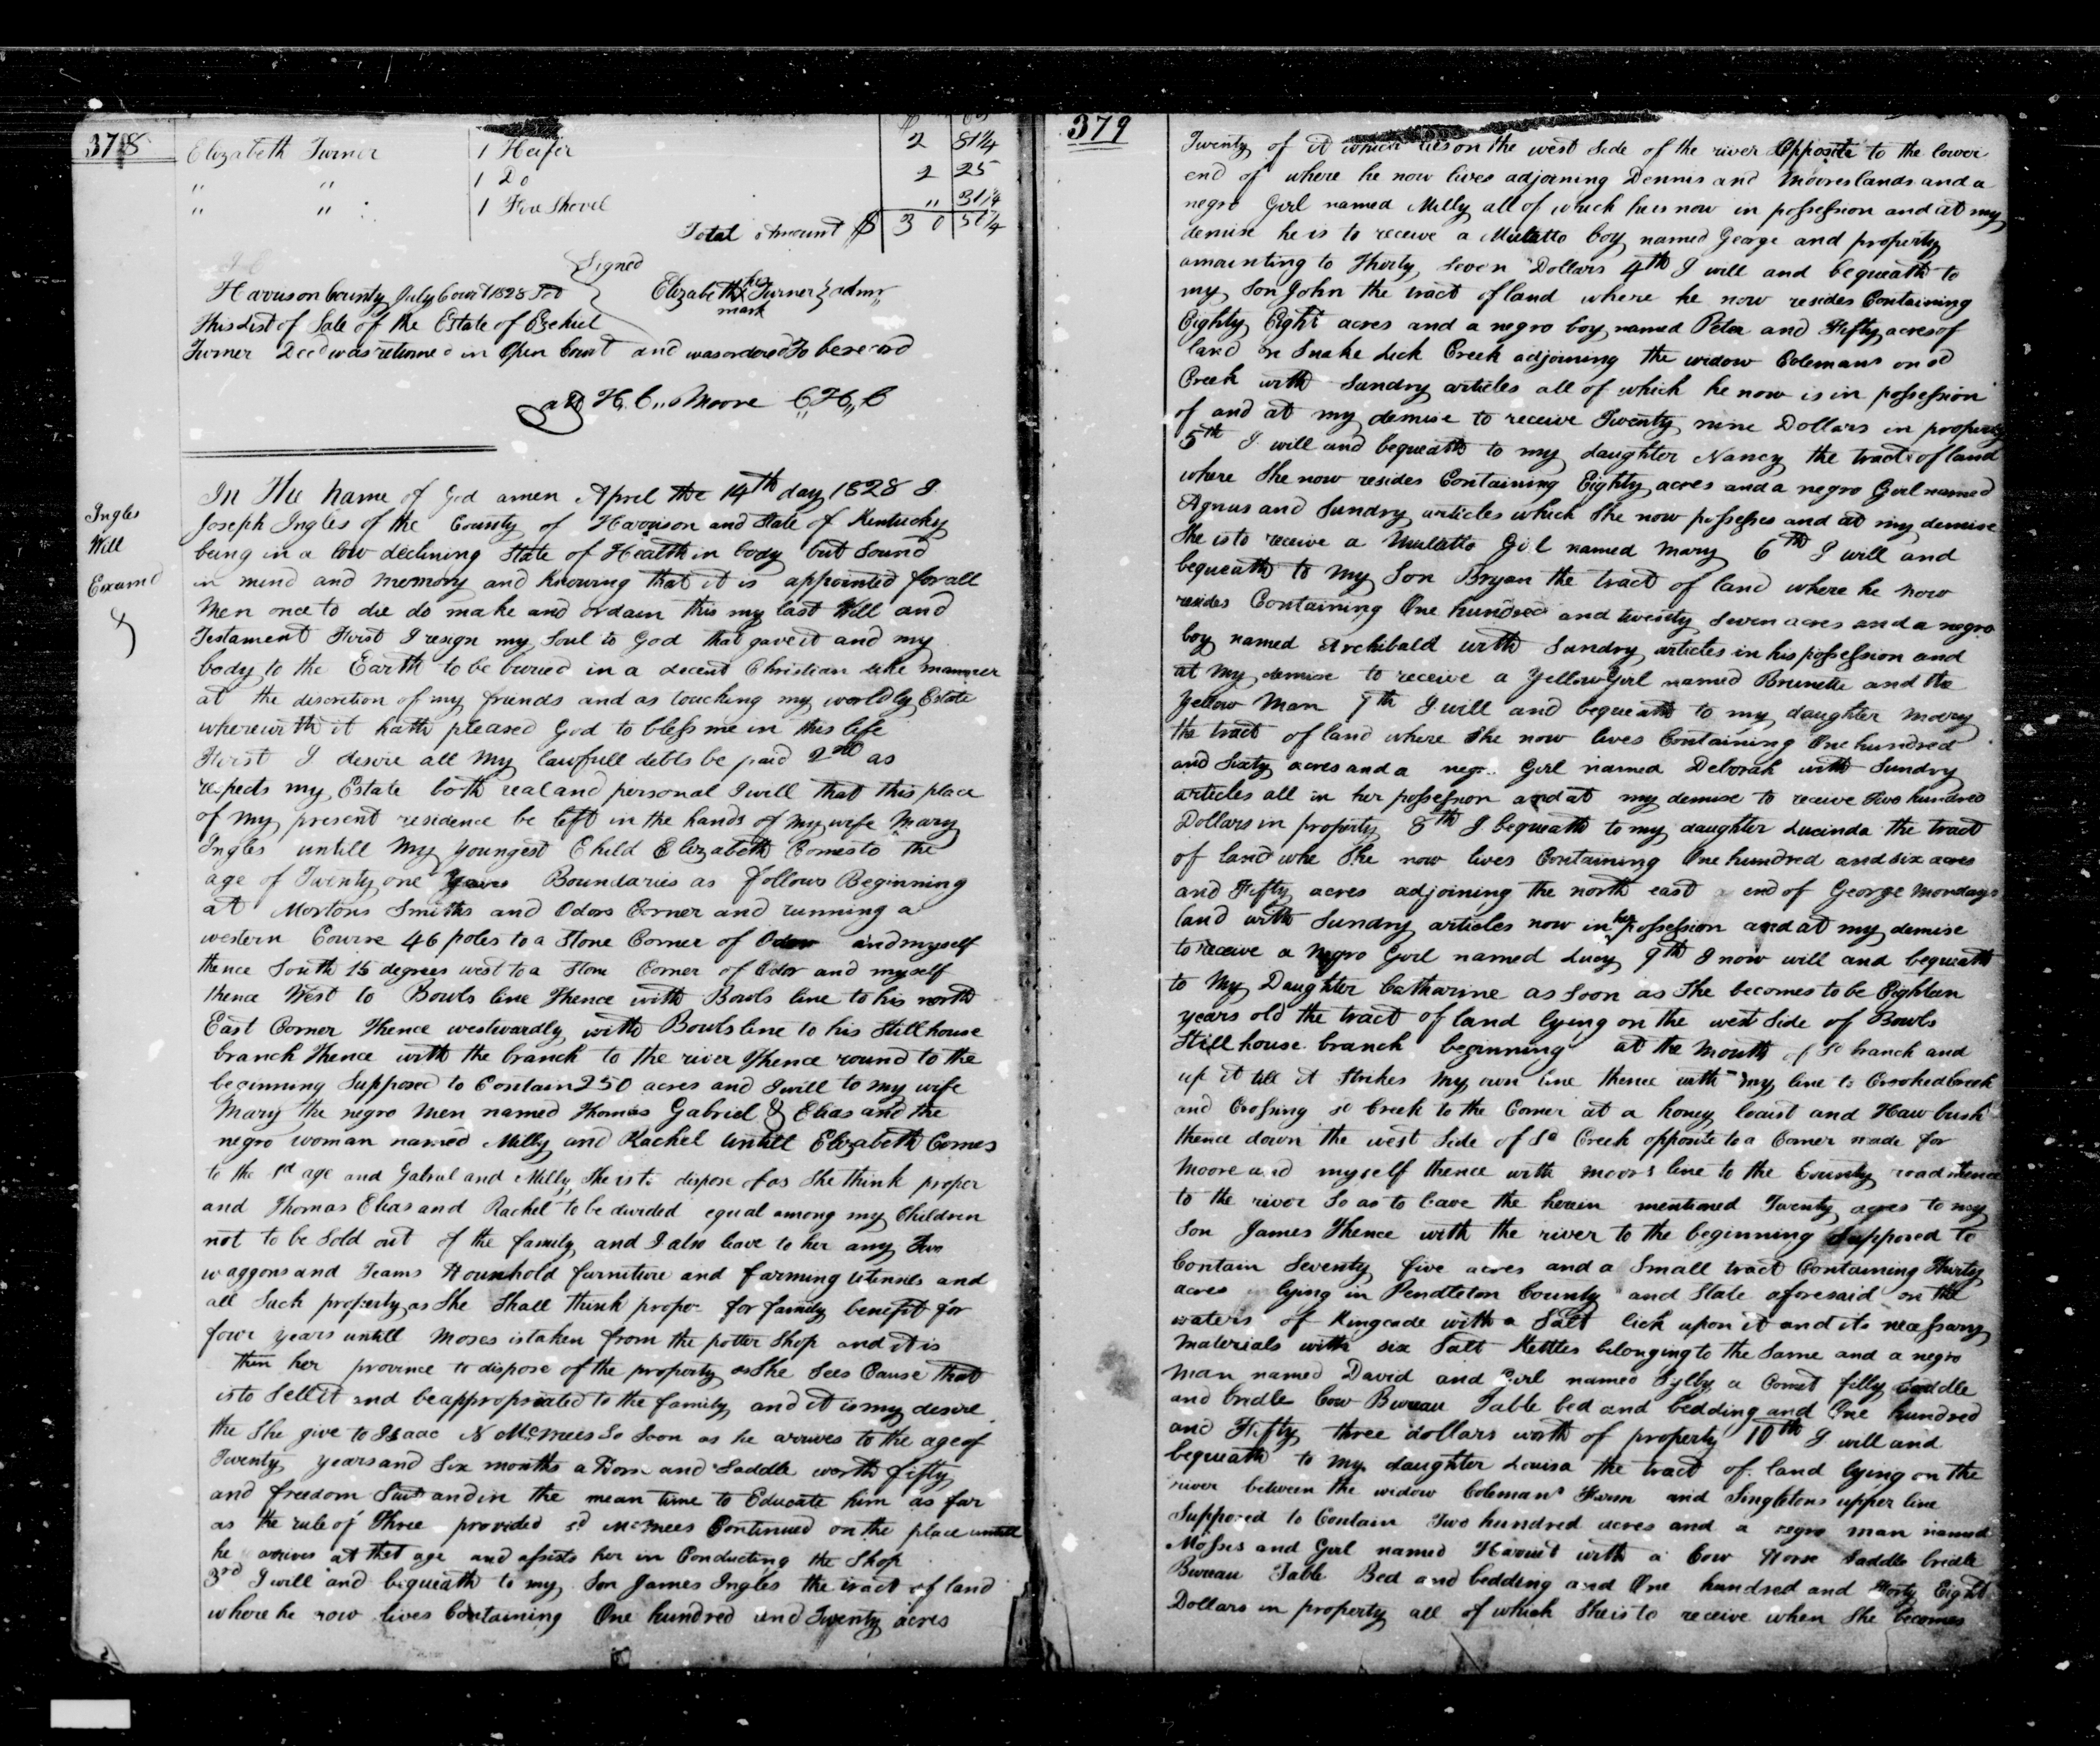 378
Elizabeth Turner 1 Heifer 2 81¼
" " 1 Do 2 25
" " 1 Fire Shovel " 31¼
Total Amount $ 30 56¼
Signed
Harrison County July Court 1828 Sct Elizabeth her Turner } admr
mark
This List of Sale of the Estate of Ezekiel
Turner Decd was returned in Open Court and was ordered To be record
att H. C. Moore C H C
Ingles
Will
Examd
In The name of God amen April the 14th day 1828 I
Joseph Ingles of the County of Harrison and State of Kentucky
being in a low declining State of Health in body but Sound
in mind and memory and Knowing that it is appointed for all
Men once to die do make and ordain this my last Will and
Testament First I resign my Soul to God that gave it and my
body to the Earth to be buried in a decent Christian like manner
at the discretion of my friends and as touching my worldly Estate
wherewith it hath pleased God to bless me in this life
First I desire all my lawfull debts be paid 2nd as
respects my Estate both real and personal I will that this place
of my present residence be left in the hands of my wife Mary
Ingles untill my youngest Child Elizabeth Comes to the
age of Twenty one Years Boundaries as follows Beginning
at Mortons Smiths and Odors Corner and running a
western Course 46 poles to a Stone Corner of Odor and myself
thence South 15 degrees west to a Stone Corner of Odor and myself
thence West to Bowls line Thence with Bowls line to his north
East Corner Thence westwardly with Bowls line to his Still house
branch Thence with the branch to the river Thence round to the
beginning Supposed to Contain 250 acres and I will to my wife
Mary the negro men named Thomas Gabriel & Elias and the
negro woman named Milly and Rachel untill Elizabeth Comes
to the sd age and Gabriel and Milly She is to dispose of as She think proper
and Thomas Elias and Rachel to be divided equal among my Children
not to be Sold out of the family and I also leave to her any Two
waggons and Teams Hounshold furniture and farming utensils and
all Such property as She Shall think proper for family benefit for
four years untill Moses is taken from the potter Shop and it is
then her province to dispose of the property as She Sees Cause that
is to Sell it and be appropriated to the family and it is my desire
the She give to Isaac N McMees So Soon as he arrives to the age of
Twenty years and Six months a Horse and Saddle worth fifty
and freedom Suit and in the mean time to Educate him as far
as the rule of Three provided sd McMees Continued on the place untill
he arrives at that age and assists her in Conducting the Shop
3rd I will and bequeath to my Son James Ingles the tract of land
where he now lives Containing One hundred and Twenty acres
379
Twenty of it which lies on the west Side of the river Opposite to the lower
end of where he now lives adjoining Dennis and Moores lands and a
negro Girl named Milly all of which he is now in possession and at my
demise he is to receive a Mulatto boy named George and property
amounting to Thirty Seven Dollars 4th I will and bequeath to
my Son John the tract of land where he now resides Containing
Eighty Eight acres and a negro boy named Peter and Fifty acres of
land on Snake Lick Creek adjoining the widow Colemans on sd
Creek with Sundry articles all of which he now is in possession
of and at my demise to receive Twenty nine Dollars in property
5th I will and bequeath to my daughter Nancy the tract of land
where She now resides Containing Eighty acres and a negro Girl named
Agnus and Sundry articles which She now possesses and at my demise
She is to receive a Mulatto Girl named Mary 6th I will and
bequeath to my Son Bryan the tract of land where he now
resides Containing One hundred and twenty Seven acres and a negro
boy named Archibald with Sundry articles in his possession and
at my demise to receive a Yellow Girl named Brunette and the
Yellow Man 7th I will and bequeath to my daughter Mary
the tract of land where She now lives Containing One hundred
and Sixty acres and a negro Girl named Deborah with Sundry
articles all in her possession and at my demise to receive Two hundred
Dollars in property 8th I bequeath to my daughter Lucinda the tract
of land whe She now lives Containing One hundred and six acres
and Fifty acres adjoining the north east end of George Mondays
land with Sundry articles now in her possession and at my demise
to receive a Negro Girl named Lucy 9th I now will and bequeath
to My Daughter Catharine as Soon as She becomes to be Eighteen
years old the tract of land lying on the west Side of Bowls
Still house branch beginning at the Mouth of sd branch and
up it till it Strikes my own line thence with my line to Crooked Creek
and Crossing sd Creek to the Corner at a honey locust and Haw bush
thence down the west Side of Sd Creek opposite to a Corner made for
Moore and myself thence with Moors line to the County road thence
to the river So as to leave the herein mentioned Twenty acres to my
Son James Thence with the river to the beginning Supposed to
Contain Seventy five acres and a Small tract Containing Thirty
acres lying in Pendleton County and State aforesaid on the
waters of Kingcade with a Salt lick upon it and its necessary
Materials with six Salt Kettles belonging to the Same and a negro
man named David and Girl named Sylby a Comet filly Saddle
and bridle Cow Bureau Table bed and bedding and One hundred
and Fifty three dollars worth of property 10th I will and
bequeath to my daughter Louisa the tract of land lying on the
river between the widow Colemans Farm and Singletons upper line
Supposed to Contain Two hundred acres and a negro man named
Mosses and Girl named Harriet with a Cow Horse Saddle bridle
Bureau Table Bed and bedding and One hundred and Forty Eight
Dollars in property all of which She is to receive when She becomes